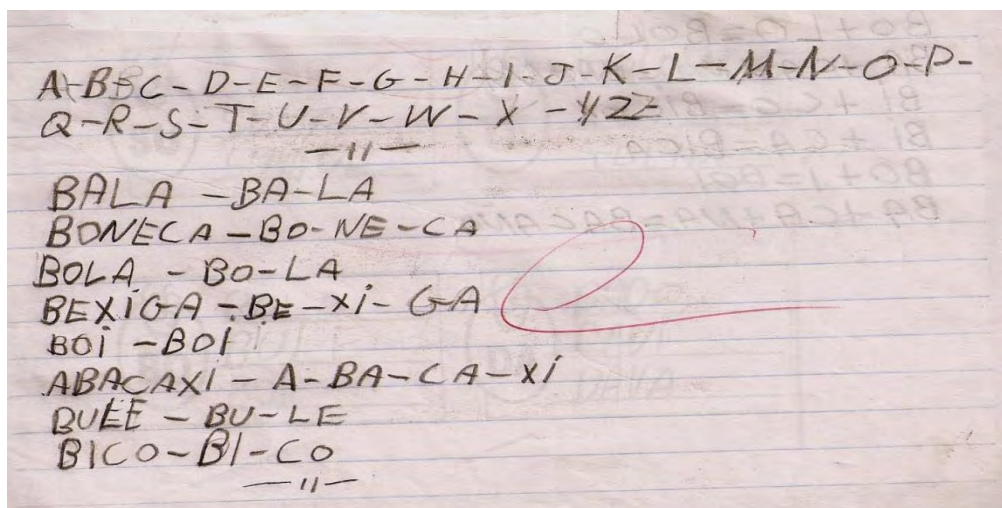 A-BBC-D-E-F-G-H-I-J-K-L-M-N-O-P-
Q-R-S-T-U-V-W-X-YZZ
—11—
BALA -BA-LA
BONECA -BO-NE-CA
BOLA - BO-LA
BEXiGA -BE-Xi-GA
BOi -BOi
ABACAXi - A-BA-CA-Xi
BULE - BU-LE
BICO-BI-CO
—11—